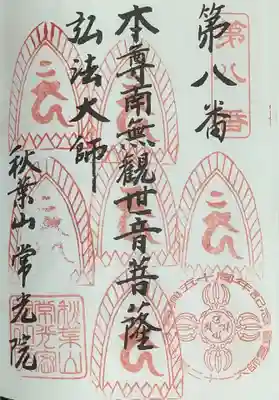 第八番
第八番
本尊南無観世音菩薩
弘法大師
秋葉山常光院
秋葉山
常光院